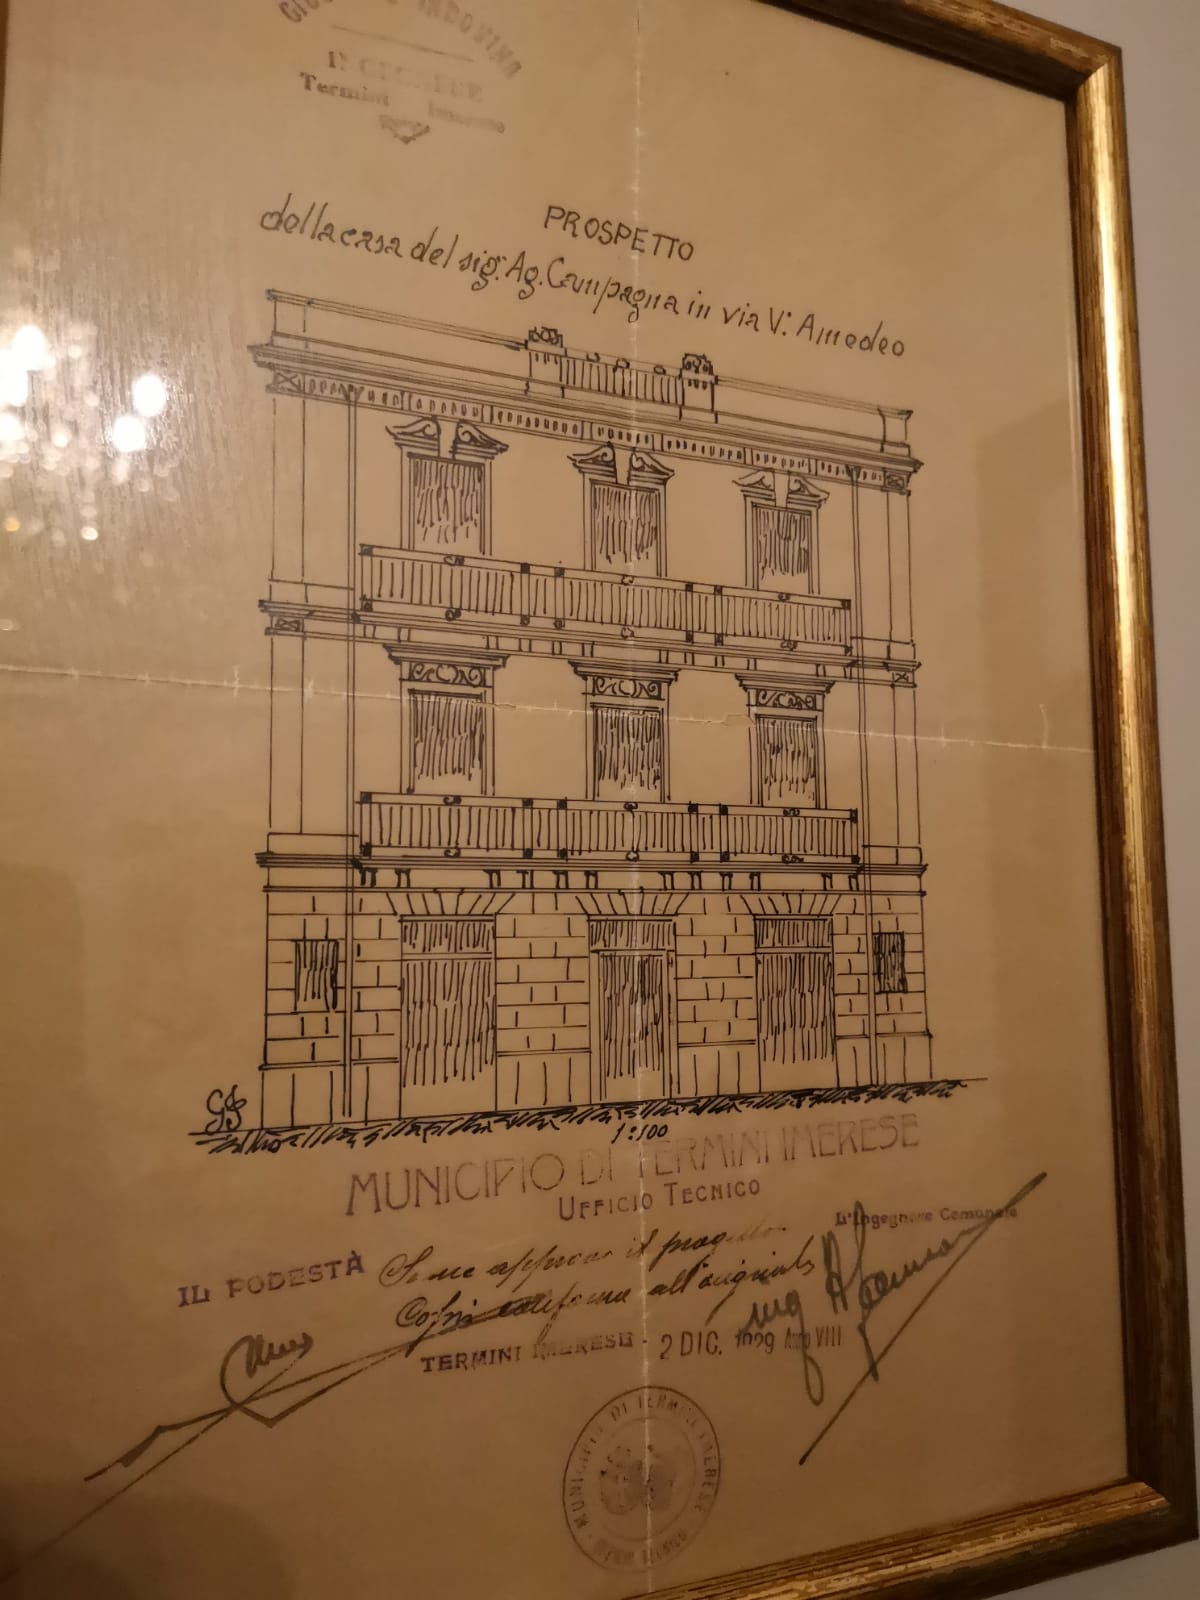 INDOVINA
INGEGNERE
Termini Imerese
PROSPETTO
della casa del sig. Ag. Campagna in via V. Amedeo
GI
1:100
MUNICIPIO DI TERMINI IMERESE
UFFICIO TECNICO
L'Ingegnere Comunale
IL PODESTÀ
Si approva il progetto
all'originale
Ing
TERMINI IMERESE - 2 DIC. 1929 Anno VIII
MUNICIPIO DI TERMINI IMERESE